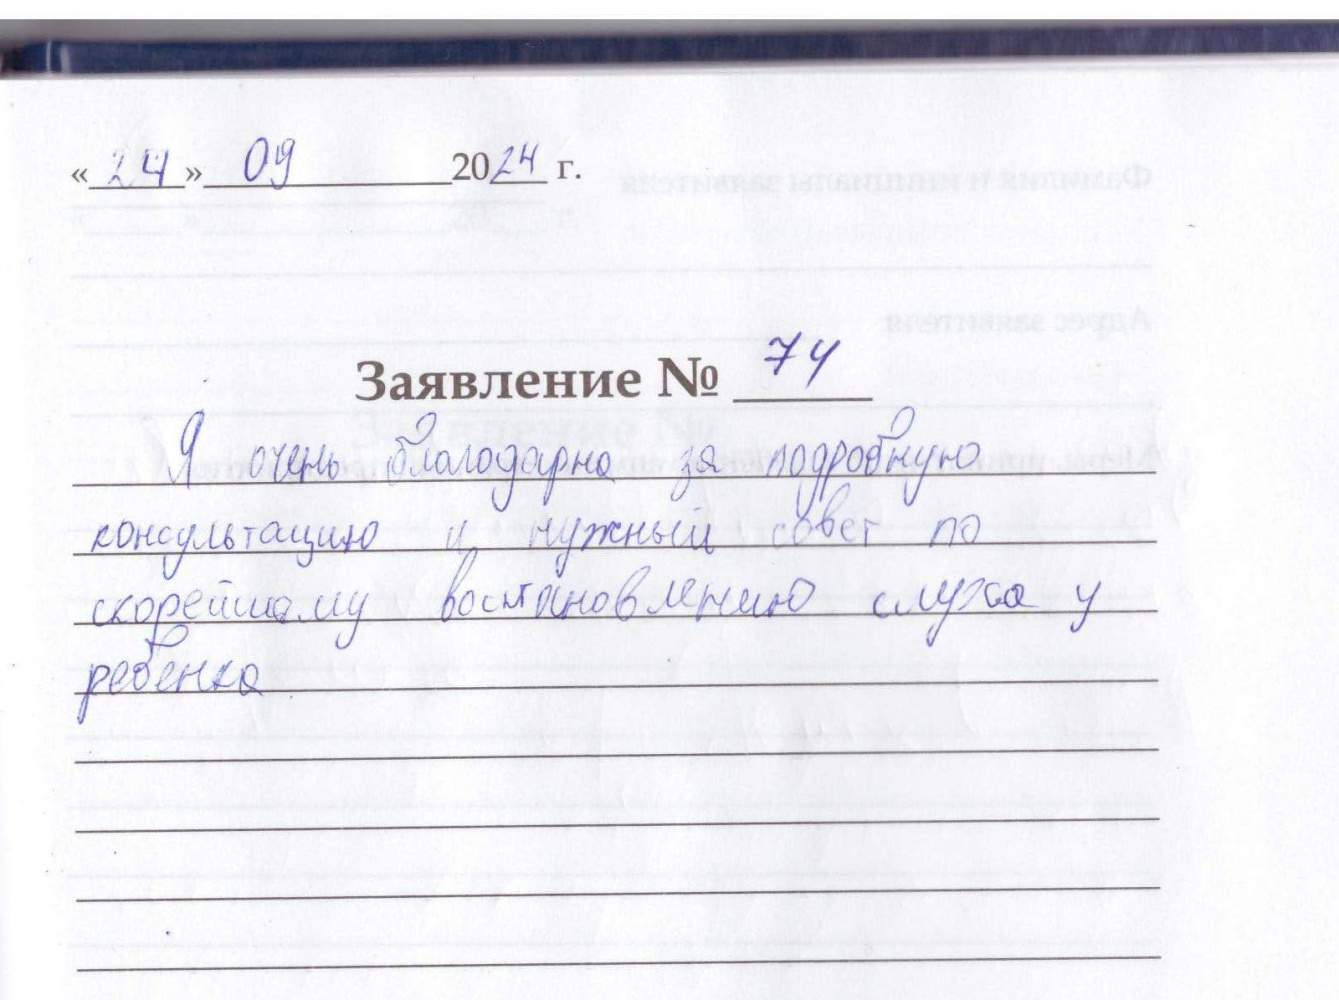 «24» 09 2024 г.
Заявление № 74
Я очень благодарна за подробную
консультацию и нужный совет по
скорейшему востановлению слуха у
ребенка